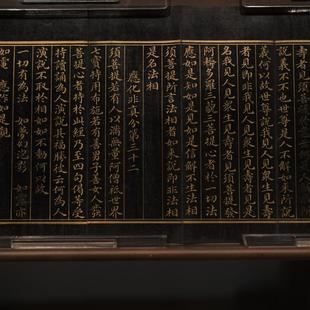 壽者見須菩提於意
說義不不也世尊是人不解如來所說
義何以故世尊說我見人見眾生見壽
者見即非我見人見眾生見壽者見是
名我見人見眾生見壽者見須菩提發
阿耨多羅三藐三菩提心者於一切法
應如是知如是見如是信解不生法相
須菩提所言法相者如來說即非法相
是名法相
應化非真分第三十二
須菩提若有人以滿無量阿僧祇世界
七寶持用布施若有善男子善女人發
菩提心者持於此經乃至四句偈等受
持讀誦為人演說其福勝彼云何為人
演說不取於相 如如不動何以故
一切有為法 如夢幻泡影 如露亦
如電 應作如是觀